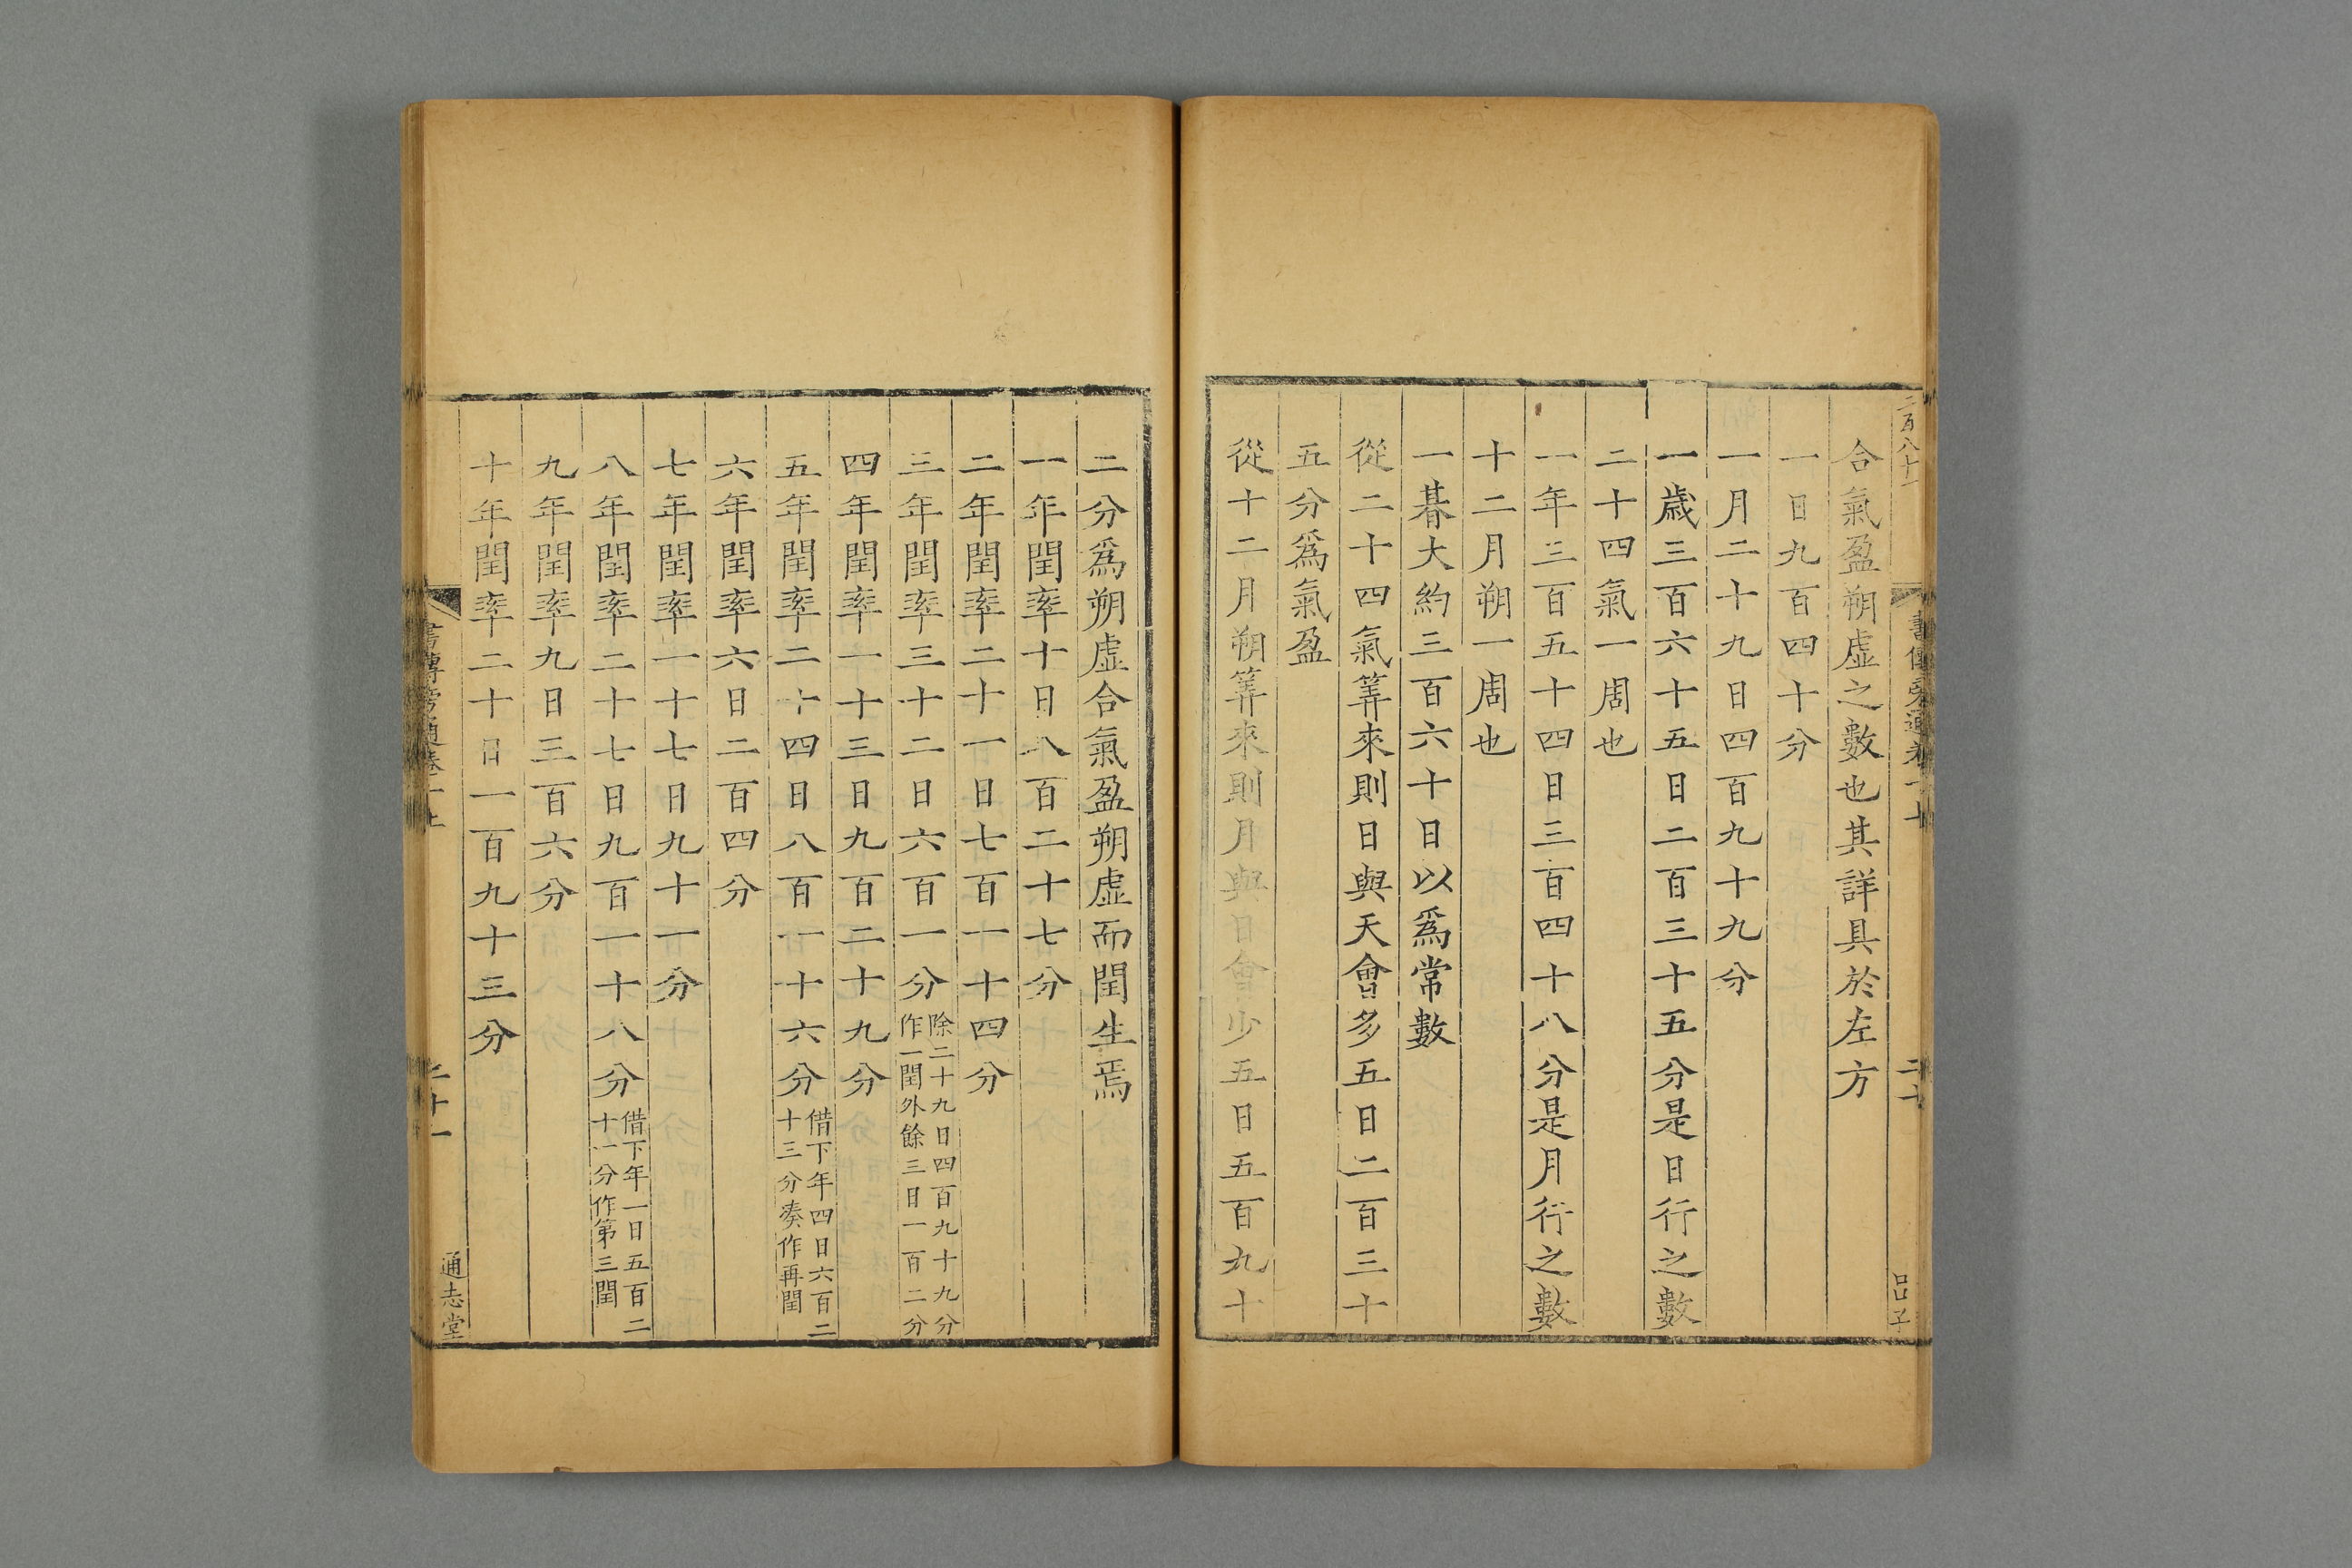 二百八十一
書傳旁通卷一上
二十
呂子
合氣盈朔虛之數也其詳具於左方
一日九百四十分
一月二十九日四百九十九分
一歲三百六十五日二百三十五分是日行之數
二十四氣一周也
一年三百五十四日三百四十八分是月行之數
十二月朔一周也
一朞大約三百六十日以爲常數
從二十四氣筭來則日與天會多五日二百三十
五分爲氣盈
從十二月朔筭來則月與日會少五日五百九十
二分爲朔虛合氣盈朔虛而閏生焉
一年閏率十日八百二十七分
二年閏率二十一日七百一十四分
三年閏率三十二日六百一分除二十九日四百九十九分
作一閏外餘三日一百二分
四年閏率一十三日九百二十九分
五年閏率二十四日八百一十六分借下年四日六百二
十三分湊作再閏
六年閏率六日二百四分
七年閏率一十七日九十一分
八年閏率二十七日九百一十八分借下年一日五百二
十一分作第三閏
九年閏率九日三百六分
十年閏率二十日一百九十三分
書傳旁通卷一上
二十一
通志堂